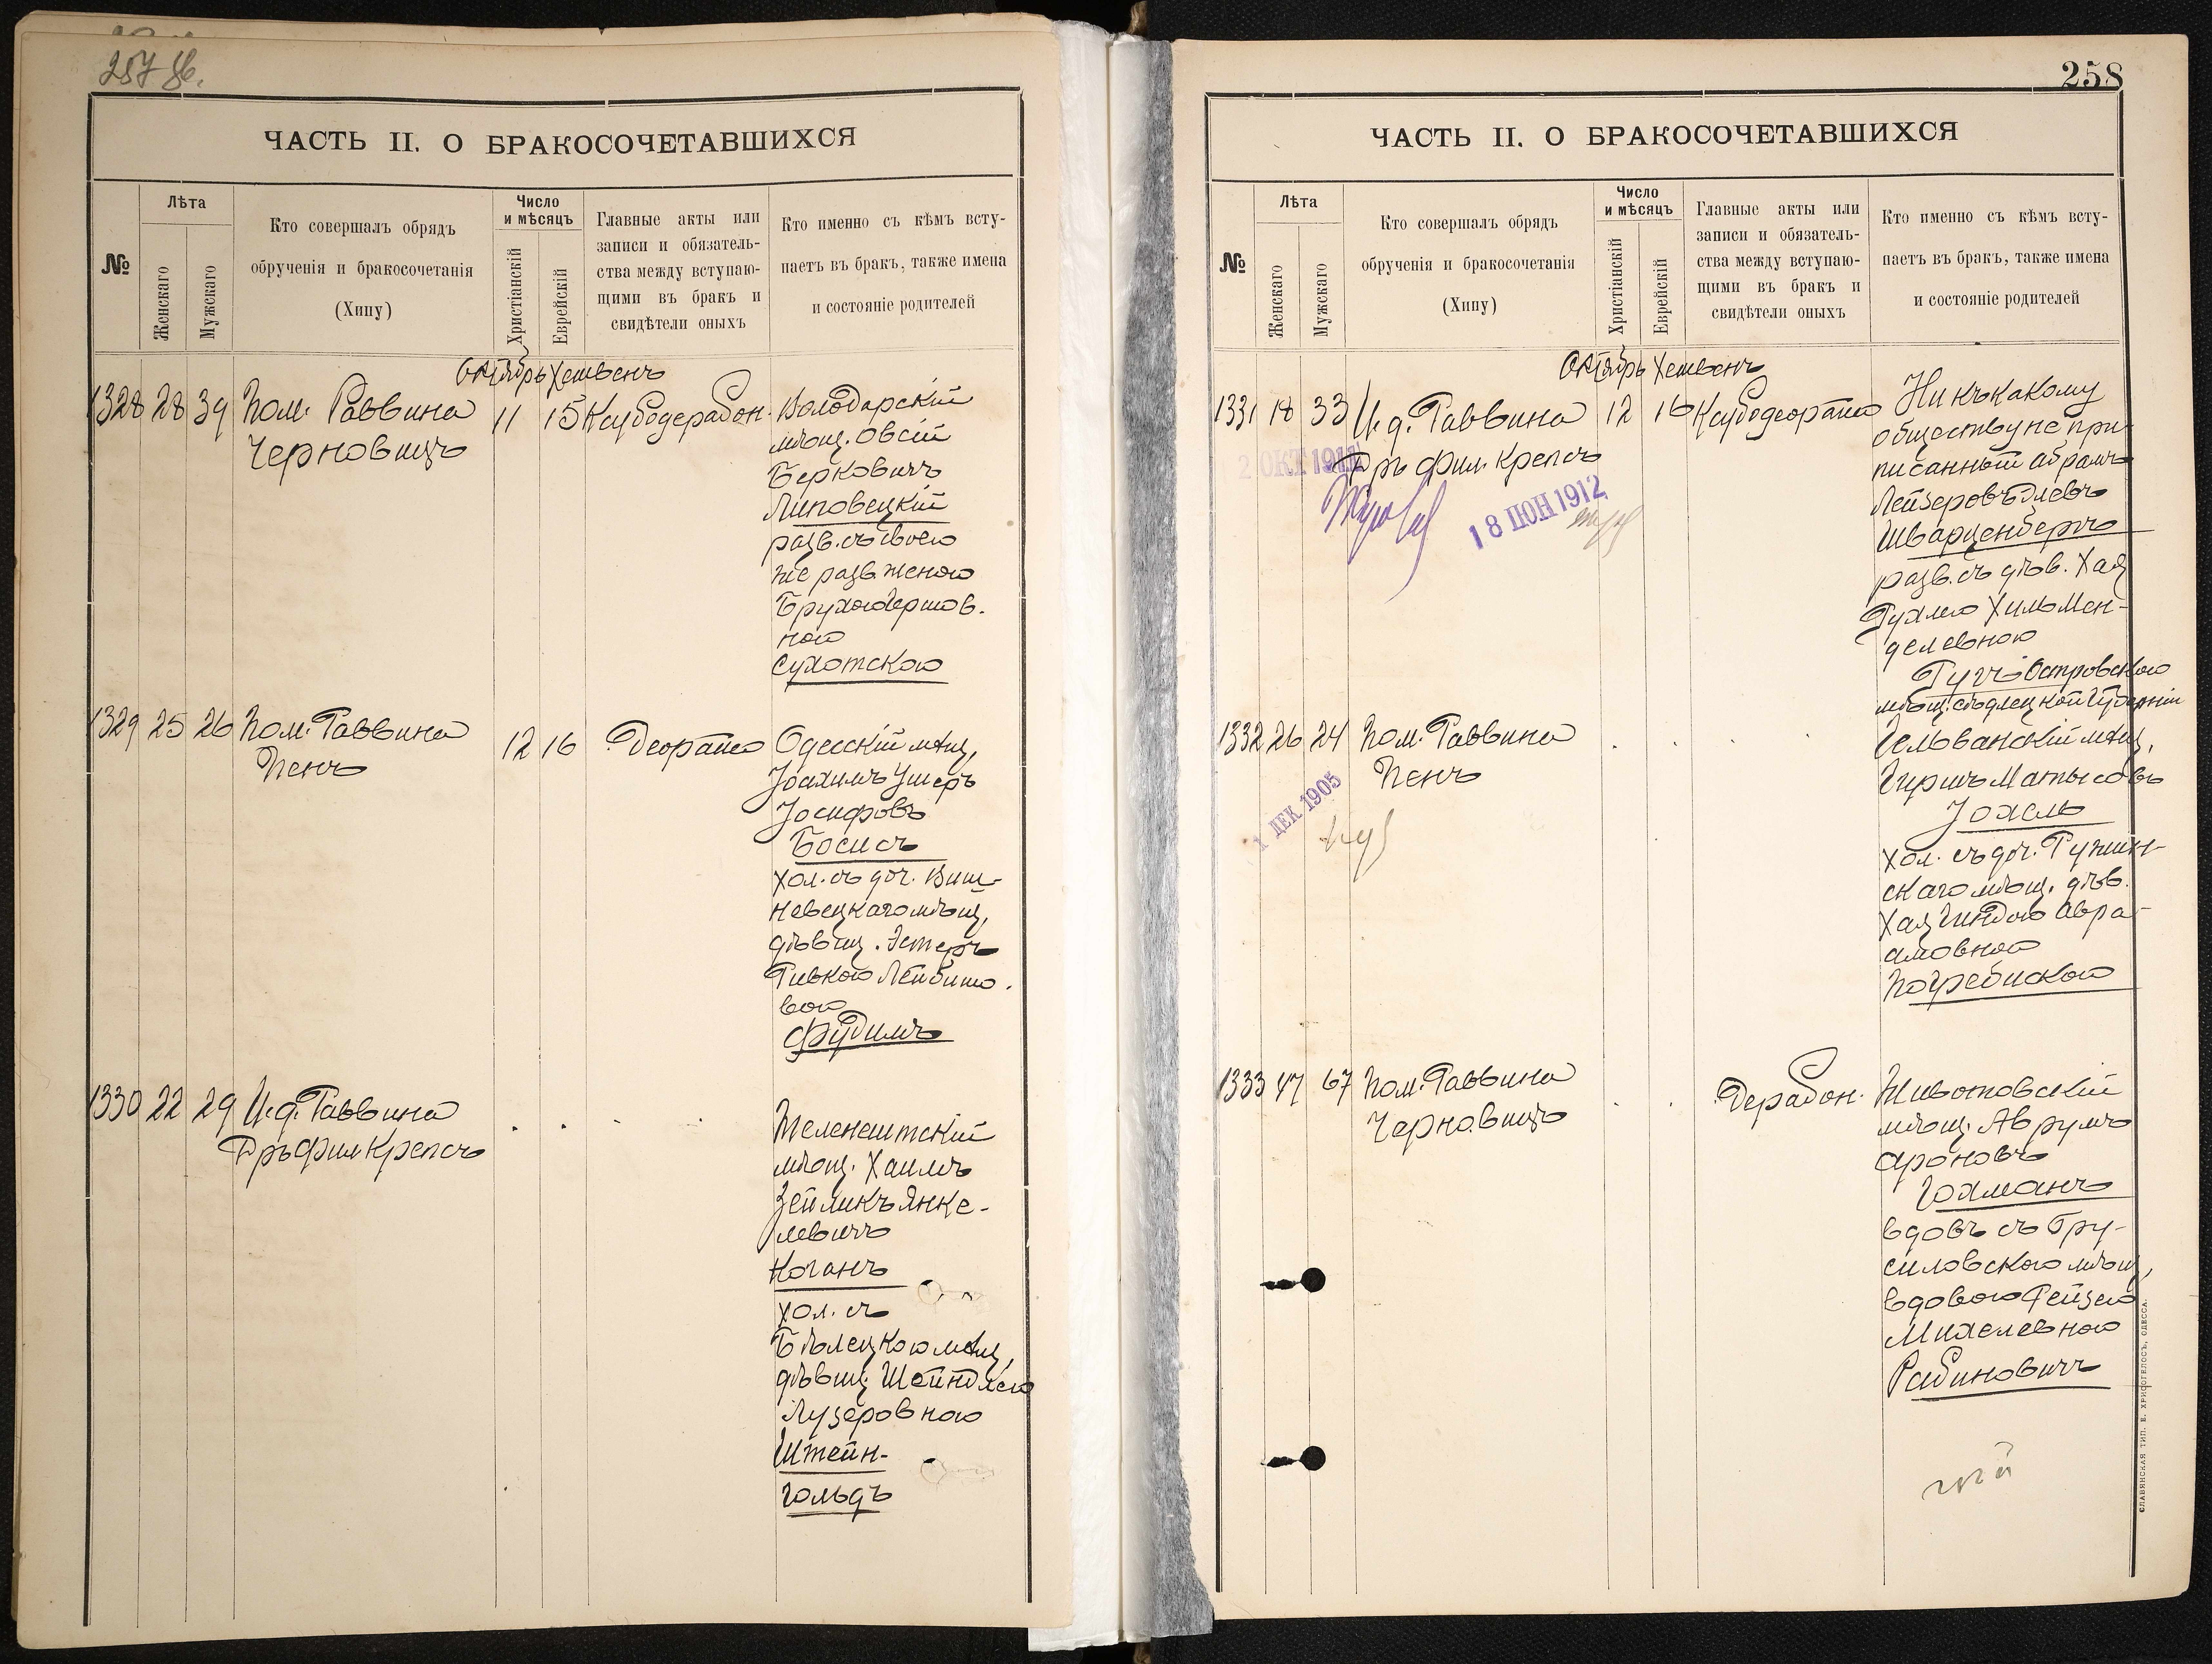 257 об.
ЧАСТЬ II. О БРАКОСОЧЕТАВШИХСЯ
№
Лѣта
Женскаго
Мужскаго
Кто совершалъ обрядъ
обрученія и бракосочетанія
(Хипу)
Число
и мѣсяцъ
Христіанскій
Еврейскій
Главные акты или
записи и обязатель-
ства между вступаю-
щими въ бракъ и
свидѣтели оныхъ
Кто именно съ кѣмъ всту-
паетъ въ бракъ, также имена
и состояніе родителей
Октябрь Хешвенъ
1328 28 39 Пом. Раввина
Черновицъ
11 15
Володарскій
мѣщ. Овсій
Берковичъ
Липовецкій
разв. съ своею
же разв. женою
Брухою Гершов.
ною
Сухотскою
1329 25 26 Пом. Раввина
Пенъ
12 16
Одесскій мѣщ.
Іоахимъ Ушеръ
Іосифовъ
Босисъ
хол. съ доч. Виш-
невецкаго мѣщ.
дѣвиц. Эстеръ
Ривкою Лейбишо-
вой
Фудимъ
1330 22 29 И.д. Раввина
Д-ръ Фил. Крепсъ
Теленештскій
мѣщ. Хаимъ
Зейликъ Янке-
левичъ
Коганъ
хол. съ
Бѣлецкою мѣщ.
дѣвиц. Шейндлею
Лузеровною
Штейн-
гольдъ
258
ЧАСТЬ II. О БРАКОСОЧЕТАВШИХСЯ
№
Лѣта
Женскаго
Мужскаго
Кто совершалъ обрядъ
обрученія и бракосочетанія
(Хипу)
Число
и мѣсяцъ
Христіанскій
Еврейскій
Главные акты или
записи и обязатель-
ства между вступаю-
щими въ бракъ и
свидѣтели оныхъ
Кто именно съ кѣмъ всту-
паетъ въ бракъ, также имена
и состояніе родителей
Октябрь Хешвенъ
1331 18 33 И.д. Раввина
Д-ръ Фил. Крепсъ
12 16
2 ОКТ 1911
18 ІЮН 1912
Ни къ какому
обществу не при-
писанный Абрамъ
Лейзеровъ Элевъ
Шварценбергъ
разв. съ дѣв. Хая
Рухлею Хиль Мен-
делевною
Гутъ Островскою
мѣщ. Сѣдлецкой Губерніи
1332 26 24 Пом. Раввина
Пенъ
1 ДЕК 1905
Гиршъ Матысовъ
Іохель
хол. съ доч. Ружин-
скаго мѣщ. дѣв.
Хая Гиндою Авра-
амовной
Погребискою
1333 47 67 Пом. Раввина
Черновицъ
Животовскій
мѣщ. Аврумъ
Ароновъ
Гохманъ
вдовъ съ Бру-
силовскою мѣщ.
вдовою Рейзею
Михелевною
Рабиновичъ
СЛАВЯНСКАЯ ТИП. Е. ХРИСОГЕЛОСЪ, ОДЕССА.